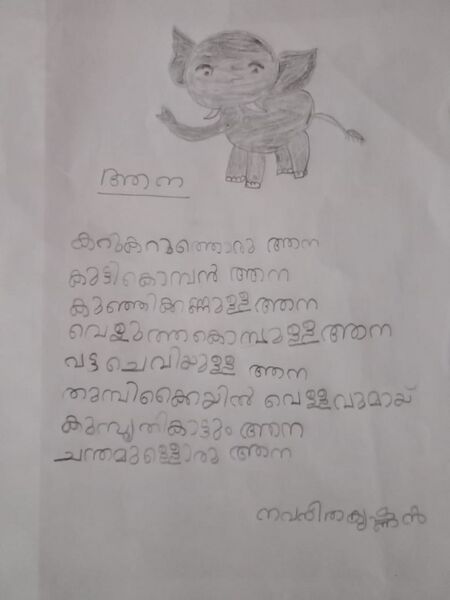 ആന
കറുകറുത്തൊരു ആന
കുട്ടികൊമ്പൻ ആന
കുഞ്ഞിക്കണ്ണുള്ള ആന
വെളുത്തകൊമ്പുള്ള ആന
വട്ട ചെവിയുള്ള ആന
തുമ്പിക്കൈയിൽ വെള്ളവുമായ്
കുമ്പുതികാട്ടും ആന
ചന്തമുള്ളൊരു ആന
നവനീതകൃഷ്ണൻ